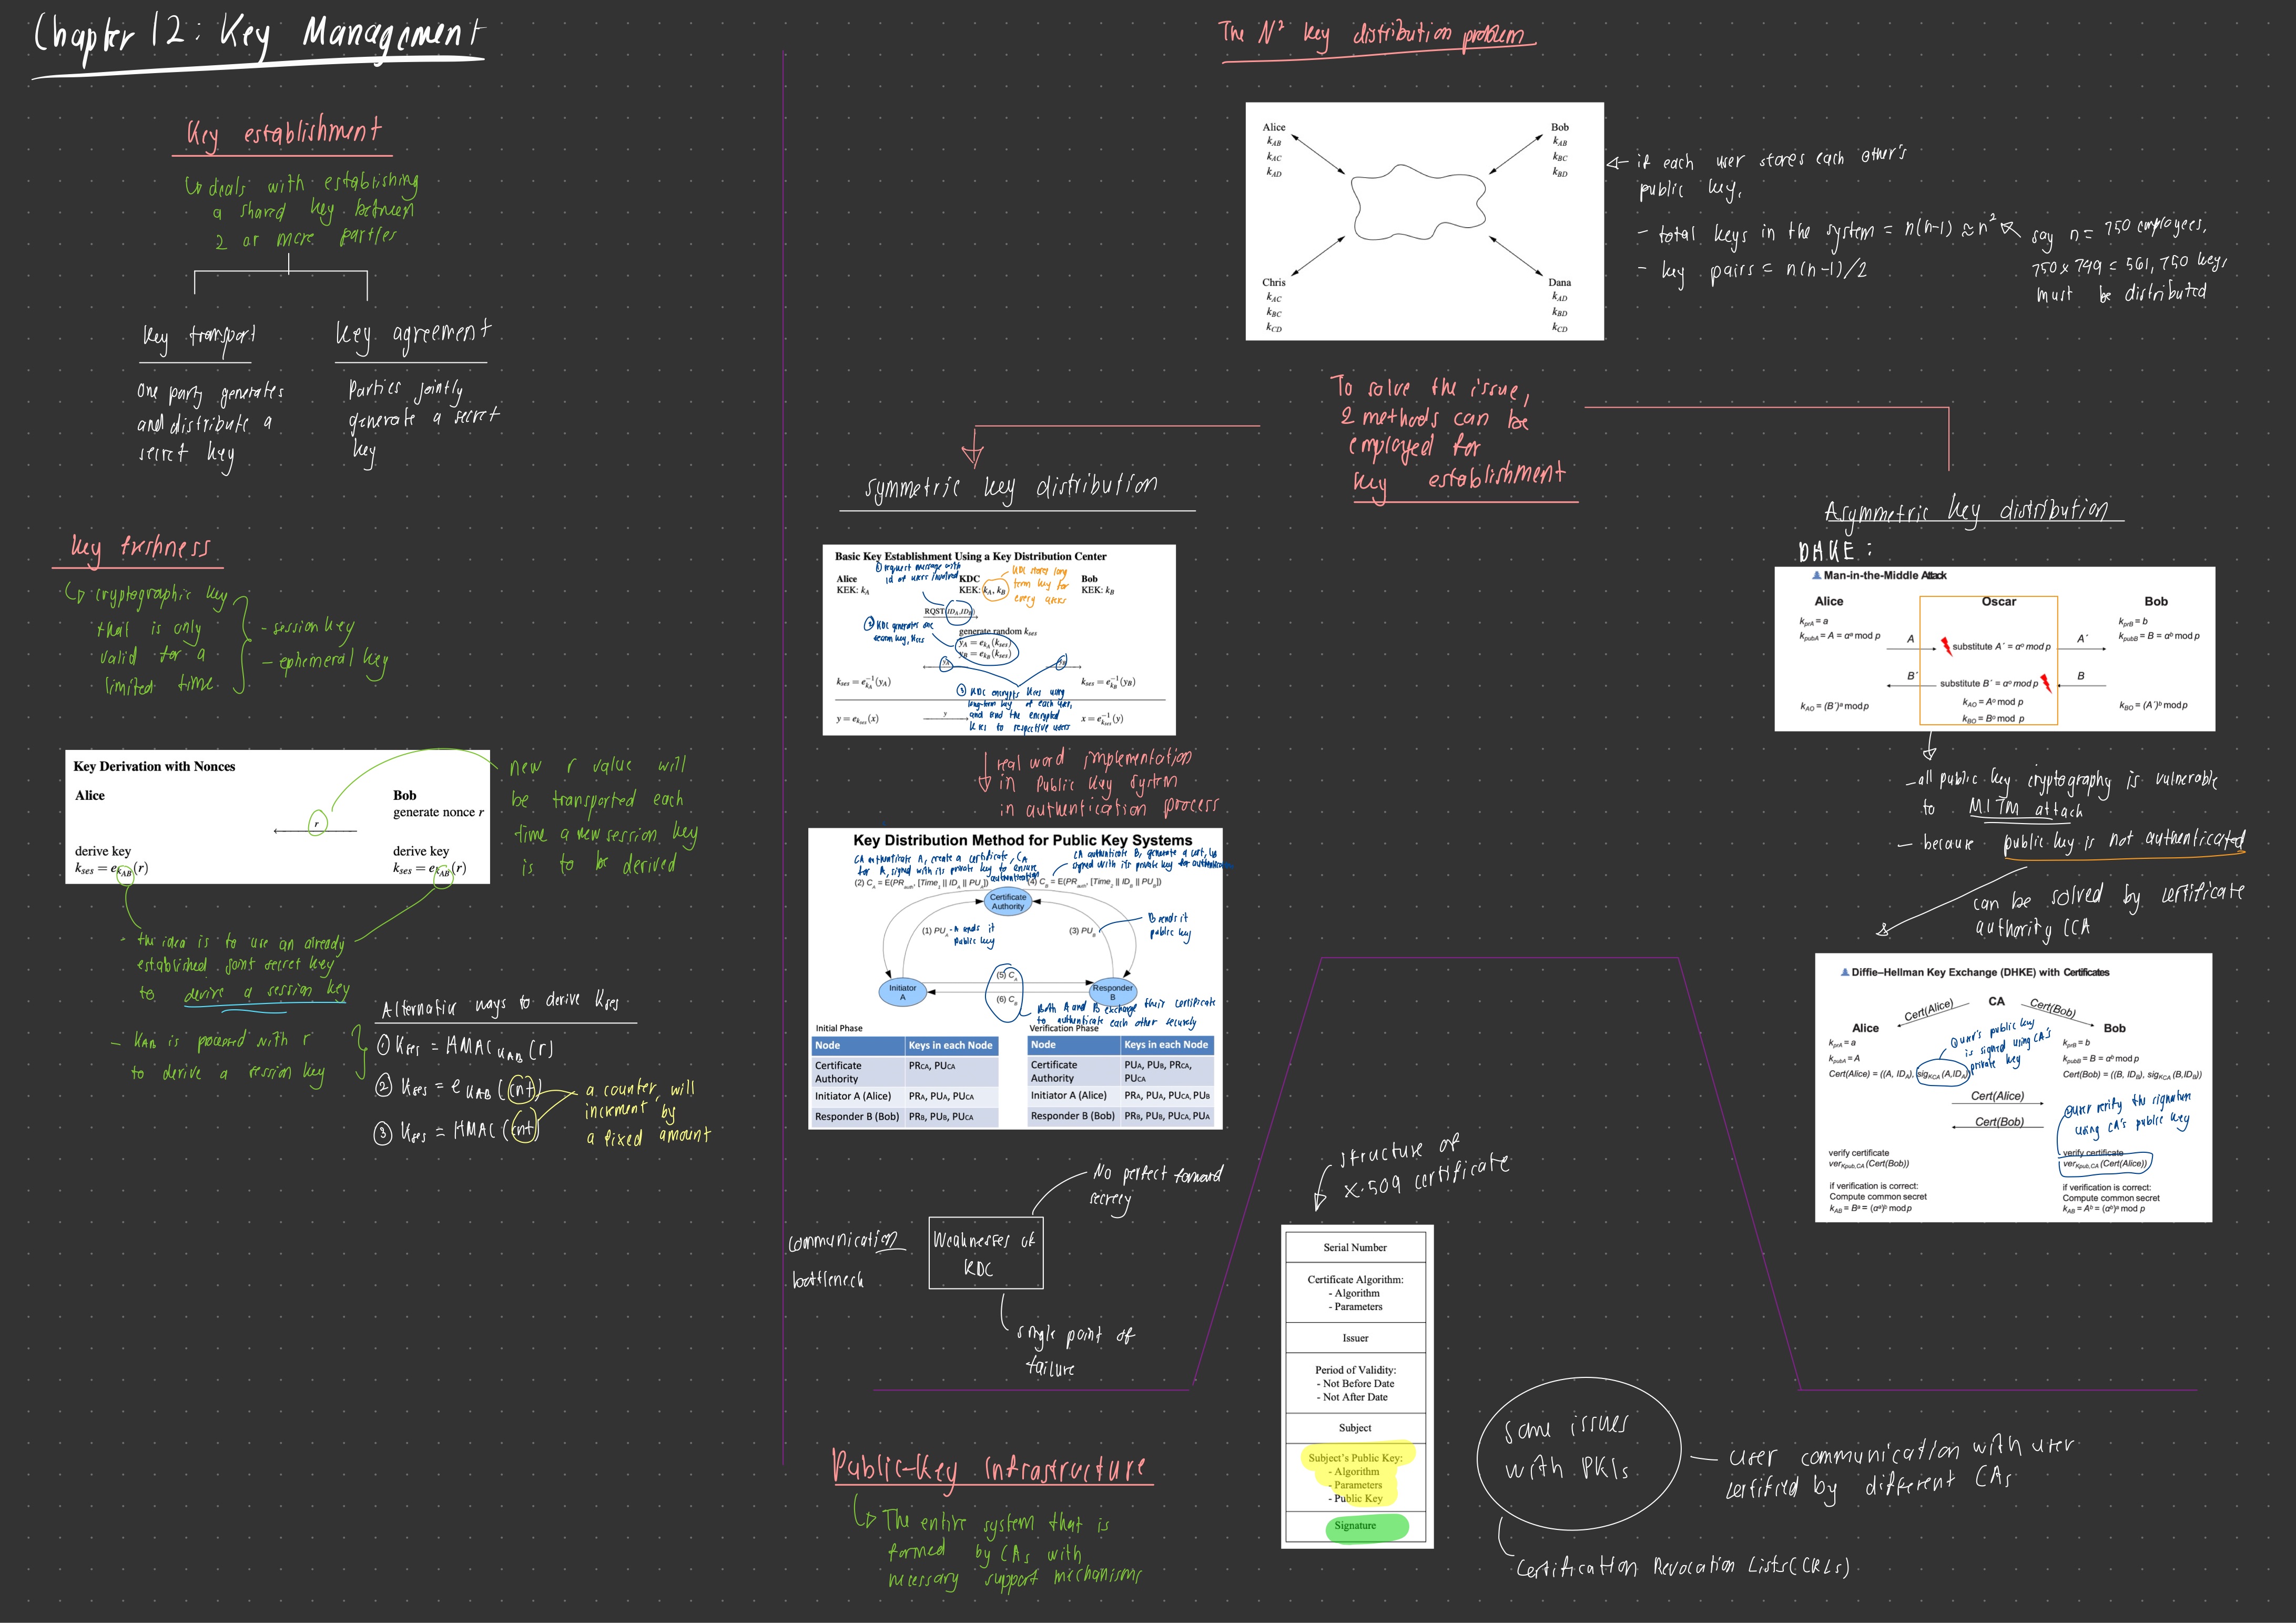 Chapter 12: Key Management
Key establishment
↳ deals with establishing
a shared key between
2 or more parties
Key transport
One party generates
and distribute a
secret key
Key agreement
Parties jointly
generate a secret
key
Key freshness
↳ cryptographic key
that is only
valid for a
limited time
- session key
- ephemeral key
Key Derivation with Nonces
Alice
Bob
generate nonce r
r
derive key
derive key
kses = ekAB(r)
kses = ekAB(r)
new r value will
be transported each
time a new session key
is to be derived
- the idea is to use an already
established joint secret key
to derive a session key
- KAB is processed with r
to derive a session key
Alternative ways to derive Kses
① Kses = HMAC KAB (r)
② Kses = e KAB (cnt)
③ Kses = HMAC (cnt)
a counter, will
increment by
a fixed amount
The N² key distribution problem
Alice
kAB
kAC
kAD
Bob
kAB
kBC
kBD
Chris
kAC
kBC
kCD
Dana
kAD
kBD
kCD
← if each user stores each other's
public key,
- total keys in the system = n(n-1) ≈ n²
- key pairs = n(n-1)/2
say n = 750 employees,
750 x 749 = 561,750 keys
must be distributed
To solve the issue,
2 methods can be
employed for
key establishment
symmetric key distribution
Basic Key Establishment Using a Key Distribution Center
① request message with
id of users involved
Alice
KEK: kA
KDC
KEK: kA, kB
Bob
KEK: kB
KDC stores long
term key for
every users
RQST(IDA,IDB)
② KDC generates one
generate random kses
yA = ekA(kses)
yB = ekB(kses)
yA
yB
kses = e⁻¹kA(yA)
kses = e⁻¹kB(yB)
③ KDC encrypts Kses using
long-term key of each user,
and send the encrypted
Kses to respective users
y = ekses(x)
y
x = e⁻¹kses(y)
real word implementation
in Public key system
in authentication process
Key Distribution Method for Public Key Systems
CA authenticate A, create a certificate, CA
for A, signed with its private key to ensure
authentication
CA authenticate B, generate a cert, CB
signed with its private key for authentication
(2) CA = E(PRauth, [Time1 || IDA || PUA])
(4) CB = E(PRauth, [Time2 || IDB || PUB])
Certificate
Authority
(1) PUA - A sends it
public key
(3) PUB
B sends it
public key
Initiator
A
(5) CA
(6) CB
Responder
B
Both A and B exchange their certificate
to authenticate each other securely
Initial Phase
Node Keys in each Node
Certificate Authority PRCA, PUCA
Initiator A (Alice) PRA, PUA, PUCA
Responder B (Bob) PRB, PUB, PUCA
Verification Phase
Node Keys in each Node
Certificate Authority PUA, PUB, PRCA, PUCA
Initiator A (Alice) PRA, PUA, PUCA, PUB
Responder B (Bob) PRB, PUB, PUCA, PUA
Weaknesses of
KDC
No perfect forward
secrecy
communication
bottleneck
single point of
failure
Asymmetric key distribution
DHKE:
Man-in-the-Middle Attack
Alice
Oscar
Bob
kprA = a
kpubA = A = αᵃ mod p
kprB = b
kpubB = B = αᵇ mod p
A
substitute A´ = αᵒ mod p
A´
B´
substitute B´ = αᵒ mod p
B
kAO = (B´)ᵃ mod p
kAO = Aᵒ mod p
kBO = Bᵒ mod p
kBO = (A´)ᵇ mod p
- all public key cryptography is vulnerable
to MITM attack
- because public key is not authenticated
can be solved by certificate
authority (CA
Diffie–Hellman Key Exchange (DHKE) with Certificates
Cert(Alice)
CA
Cert(Bob)
Alice
kprA = a
kpubA = A
Cert(Alice) = ((A, IDA), sigKCA(A,IDA)
Bob
kprB = b
kpubB = B = αᵇ mod p
Cert(Bob) = ((B, IDB), sigKCA(B,IDB))
① user's public key
is signed using CA's
private key
Cert(Alice)
Cert(Bob)
② user verify the signature
using CA's public key
verify certificate
verKpub,CA(Cert(Bob))
if verification is correct:
Compute common secret
kAB = Bᵃ = (αᵃ)ᵇ mod p
verify certificate
verKpub,CA(Cert(Alice))
if verification is correct:
Compute common secret
kAB = Aᵇ = (αᵇ)ᵃ mod p
Public-Key Infrastructure
↳ The entire system that is
formed by CAs with
necessary support mechanisms
structure of
X.509 certificate
Serial Number
Certificate Algorithm:
- Algorithm
- Parameters
Issuer
Period of Validity:
- Not Before Date
- Not After Date
Subject
Subject's Public Key:
- Algorithm
- Parameters
- Public Key
Signature
Some issues
with PKIs
user communication with user
certified by different CAs
Certification Revocation Lists(CRLs)